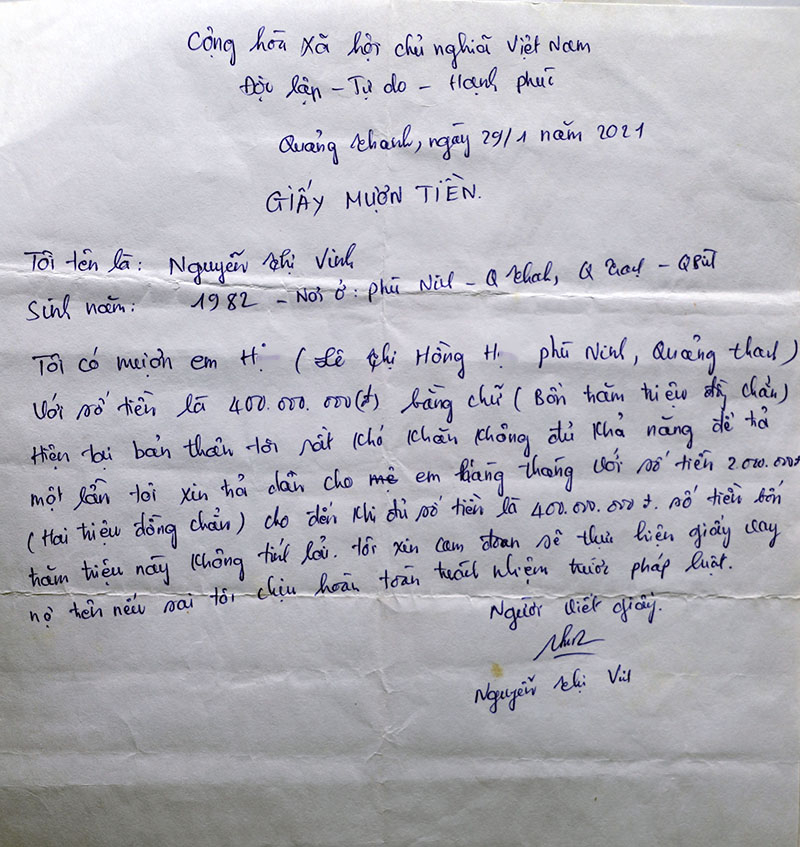 Cộng hòa xã hội chủ nghĩa Việt Nam
Độc lập - Tự do - Hạnh phúc
Quảng Thanh, ngày 29/1 năm 2021
GIẤY MƯỢN TIỀN.
Tôi tên là: Nguyễn Thị Vinh
Sinh năm: 1982 - Nơi ở: phú Ninh - Q Thanh, Q Trạch - QBình
Tôi có mượn em H (Lê Thị Hồng H phú Ninh, Quảng thanh)
Với số tiền là 400.000.000(đ) bằng chữ (Bốn trăm triệu đồng chẵn)
Hiện tại bản thân tôi rất khó khăn không đủ khả năng để trả
một lần tôi xin trả dần cho em hàng tháng với số tiền 2.000.000đ
(Hai triệu đồng chẵn) cho đến khi đủ số tiền là 400.000.000đ. số tiền bốn
trăm triệu này không tính lãi. tôi xin cam đoan sẽ thực hiện giấy vay
nợ trên nếu sai tôi chịu hoàn toàn trách nhiệm trước pháp luật.
Người viết giấy.
Nguyễn Thị Vinh